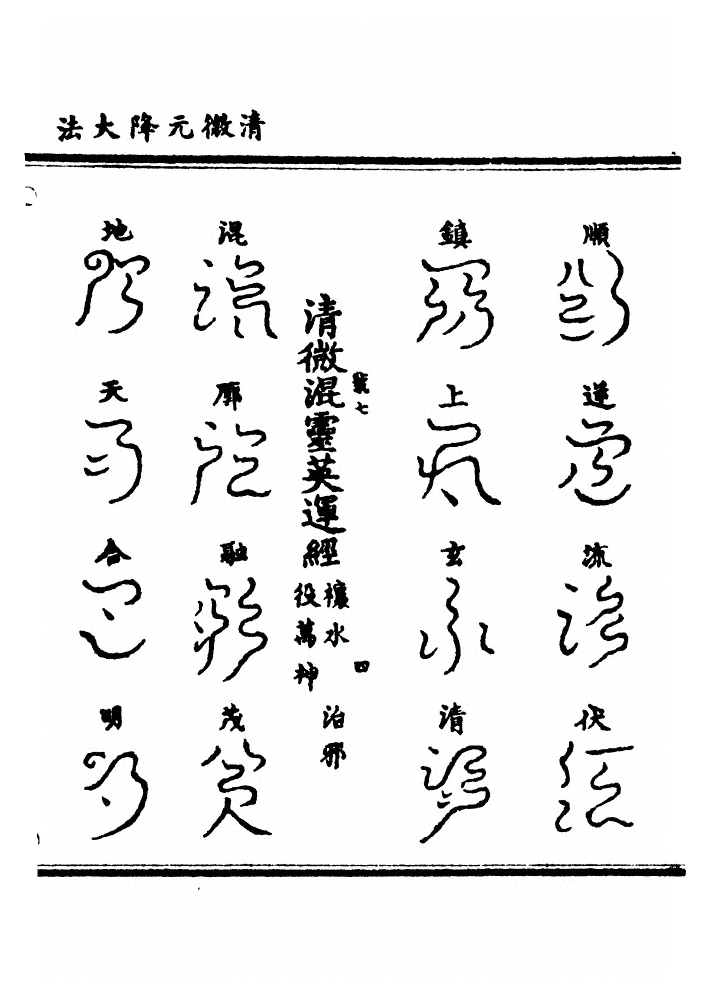 清微元降大法
順逆流伏
鎮上玄清
清微混靈英運經
號七
禳水
役萬神
四
治邪
混廓融茂
地天合明